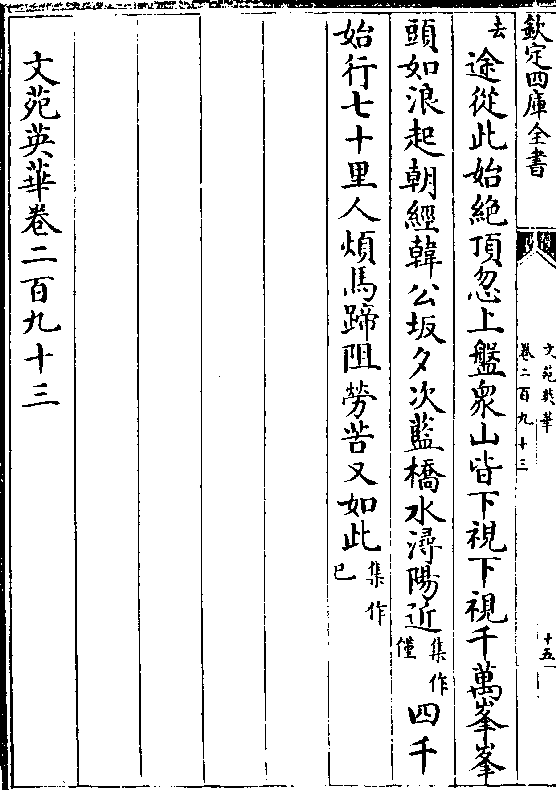 欽定四庫全書
文苑英華
卷二百九十三
十五
去途從此始絶頂忽上盤衆山皆下視下視千萬峯峯
頭如浪起朝經韓公坂夕次藍橋水潯陽近集作僅四千
始行七十里人煩馬蹄阻勞苦又如此集作已
文苑英華卷二百九十三